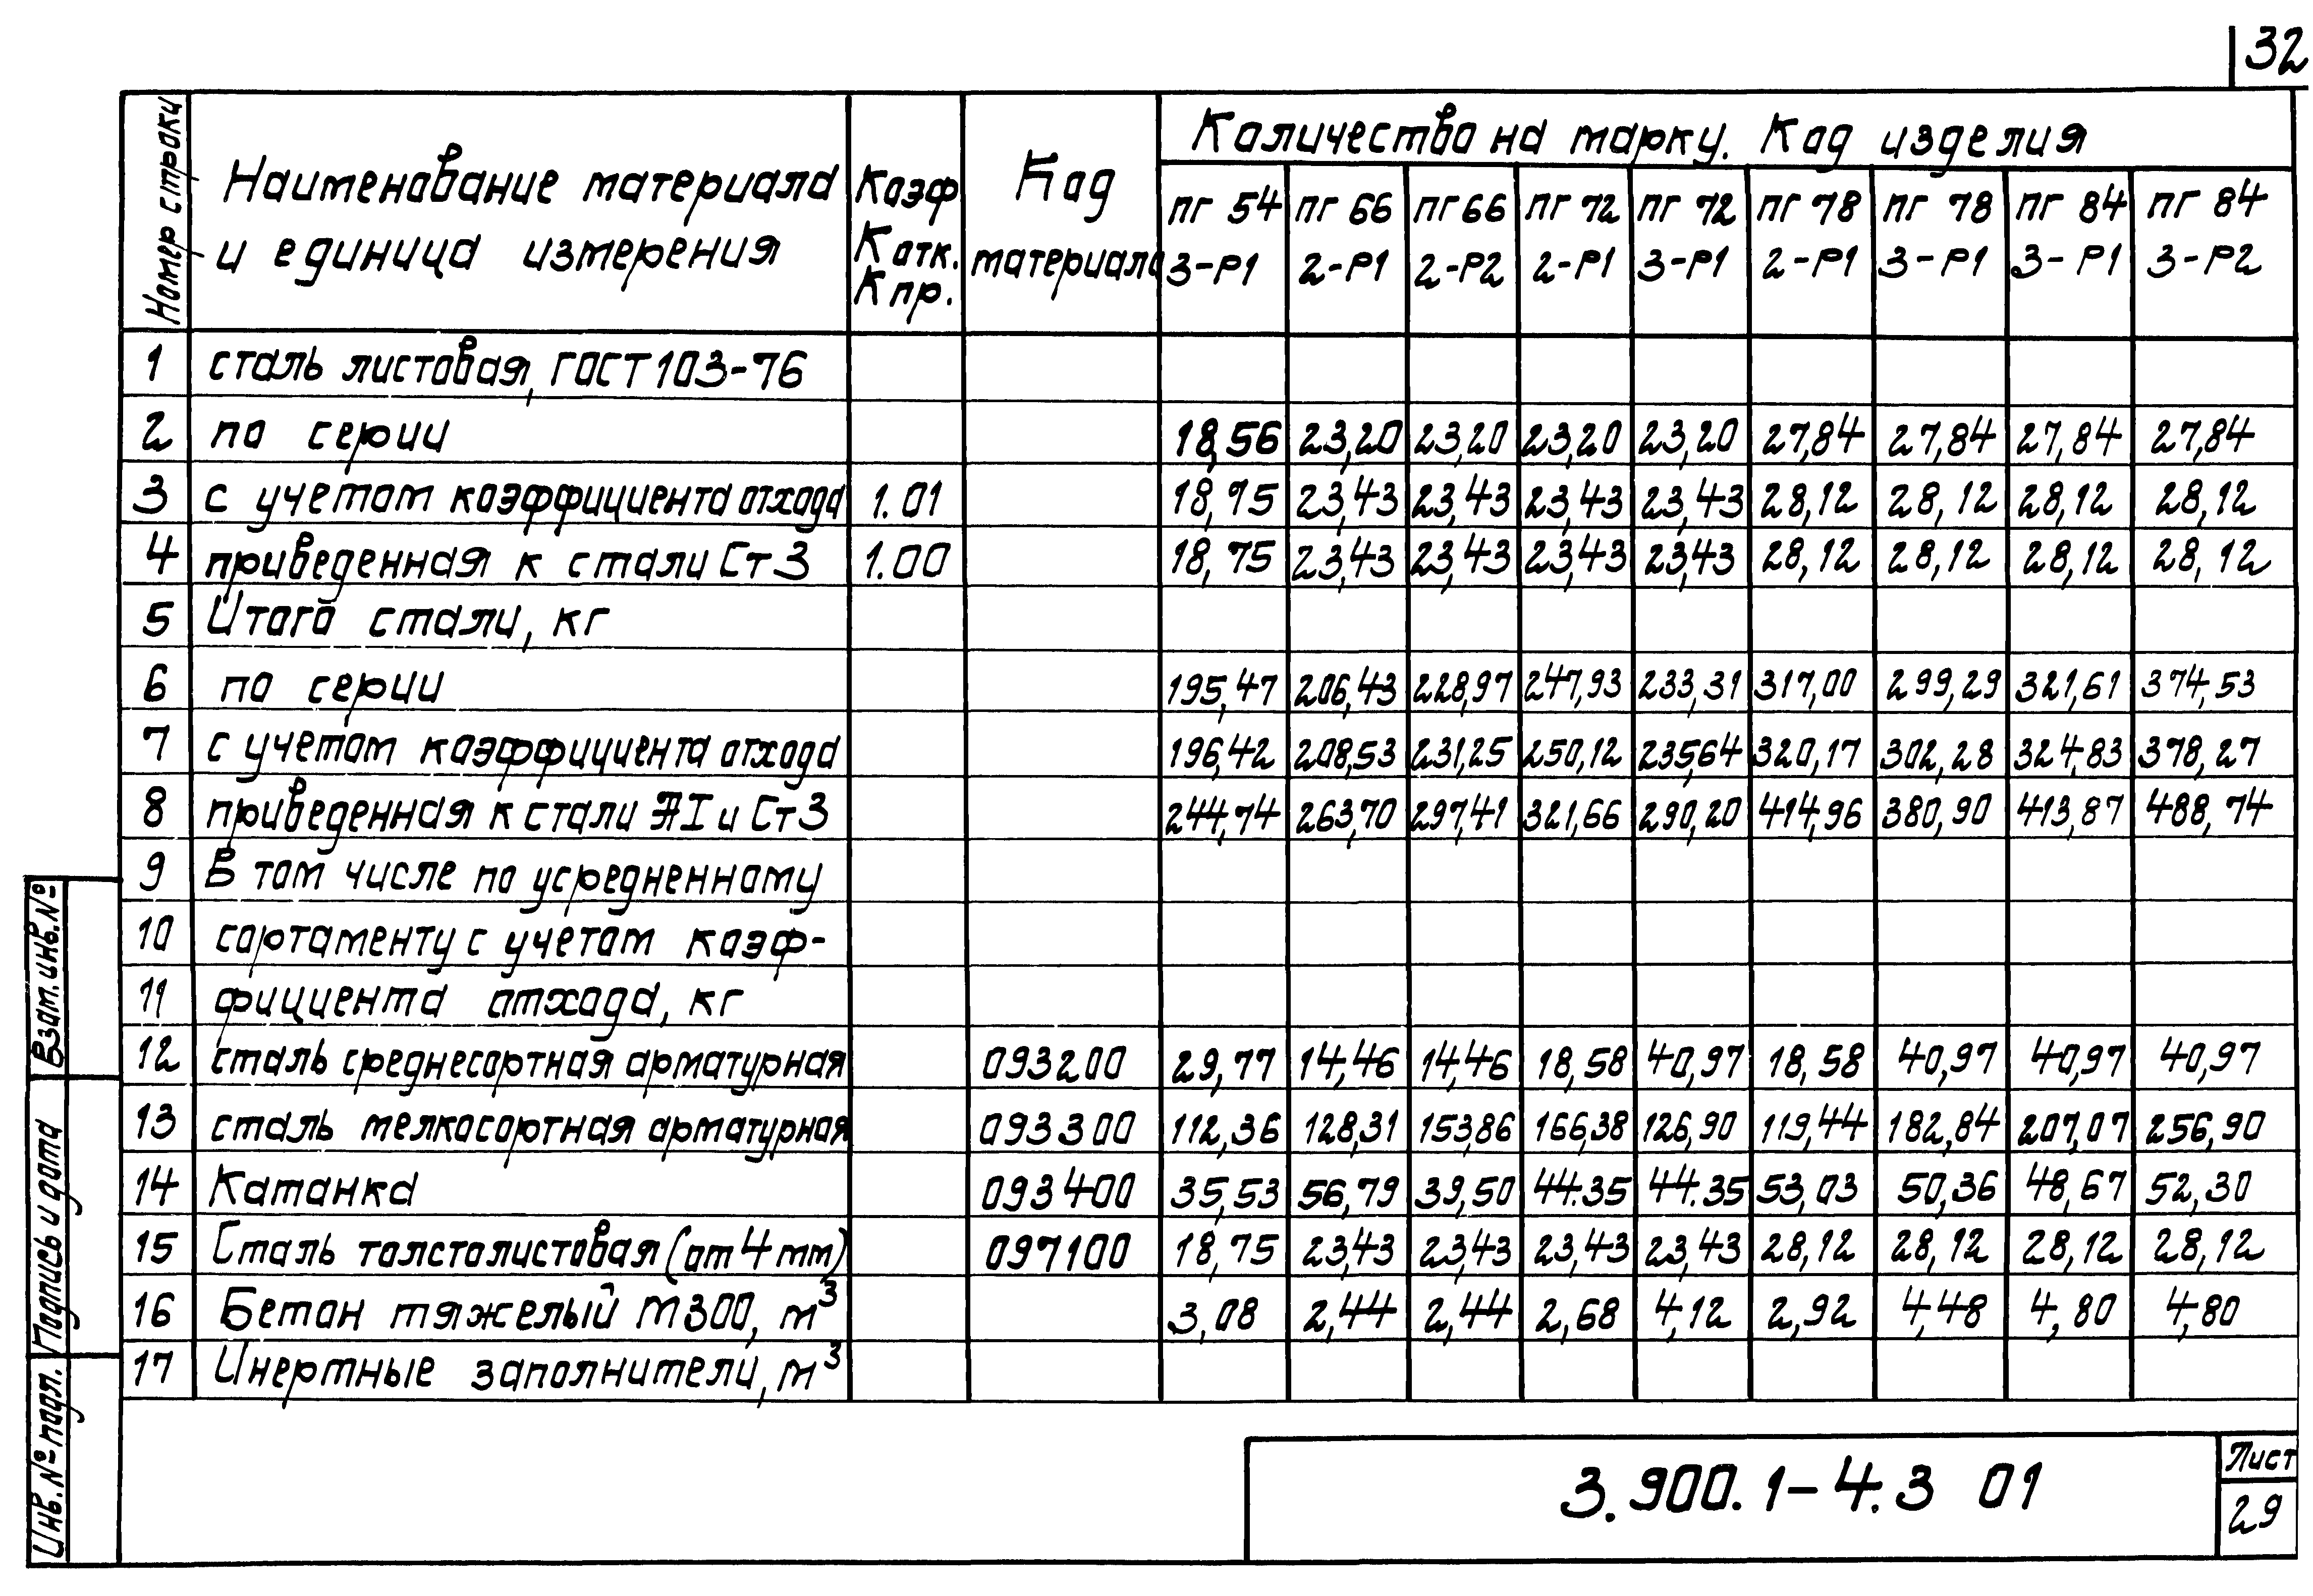 32
Номер строки | Наименование материала и единица измерения | Коэф Котк. Кпр. | Код материала | Количество на марку. Код изделия
пг 54 3-Р1 | пг 66 2-Р1 | пг 66 2-Р2 | пг 72 2-Р1 | пг 72 3-Р1 | пг 78 2-Р1 | пг 78 3-Р1 | пг 84 3-Р1 | пг 84 3-Р2
1 сталь листовая, ГОСТ 103-76
2 по серии 18,56 23,20 23,20 23,20 23,20 27,84 27,84 27,84 27,84
3 с учетом коэффициента отхода 1.01 18,75 23,43 23,43 23,43 23,43 28,12 28,12 28,12 28,12
4 приведенная к стали Ст 3 1.00 18,75 23,43 23,43 23,43 23,43 28,12 28,12 28,12 28,12
5 Итого стали, кг
6 по серии 195,47 206,43 228,97 247,93 233,31 317,00 299,29 321,61 374,53
7 с учетом коэффициента отхода 196,42 208,53 231,25 250,12 235,64 320,17 302,28 324,83 378,27
8 приведенная к стали АI и Ст 3 244,74 263,70 297,41 321,66 290,20 414,96 380,90 413,87 488,74
9 В том числе по усредненному
10 сортаменту с учетом коэф-
11 фициента отхода, кг
12 сталь среднесортная арматурная 093200 29,77 14,46 14,46 18,58 40,97 18,58 40,97 40,97 40,97
13 сталь мелкосортная арматурная 093300 112,36 128,31 153,86 166,38 126,90 119,44 182,84 207,07 256,90
14 Катанка 093400 35,53 56,79 39,50 44.35 44.35 53,03 50,36 48,67 52,30
15 Сталь толстолистовая (от 4 мм) 097100 18,75 23,43 23,43 23,43 23,43 28,12 28,12 28,12 28,12
16 Бетон тяжелый М300, м³ 3,08 2,44 2,44 2,68 4,12 2,92 4,48 4,80 4,80
17 Инертные заполнители, м³
Взам. инв. №
Подпись и дата
Инв. № подл.
3.900.1-4.3 01
Лист
29